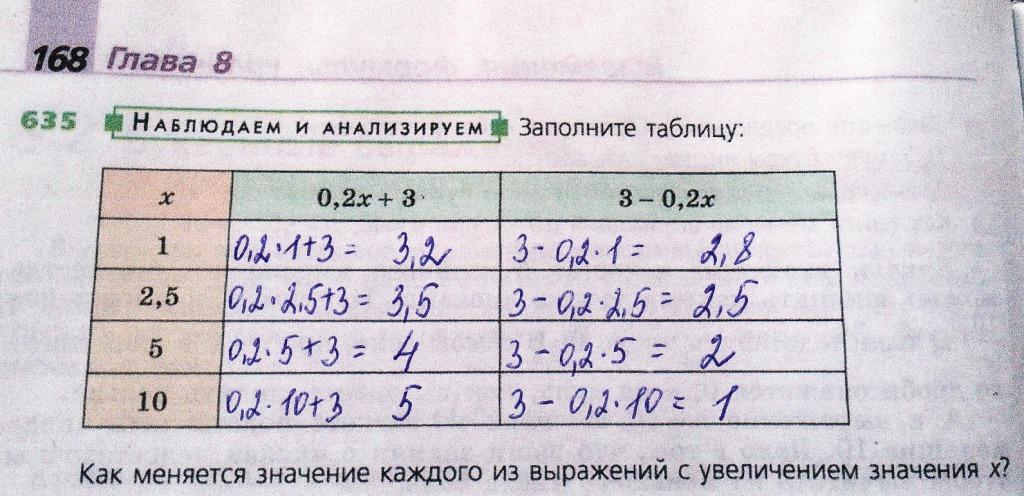 168 Глава 8
635 НАБЛЮДАЕМ И АНАЛИЗИРУЕМ Заполните таблицу:
x 0,2x + 3 3 – 0,2x
1 0,2·1+3 = 3,2 3 - 0,2·1 = 2,8
2,5 0,2·2,5+3 = 3,5 3 - 0,2·2,5 = 2,5
5 0,2·5+3 = 4 3 - 0,2·5 = 2
10 0,2·10+3 5 3 - 0,2·10 = 1
Как меняется значение каждого из выражений с увеличением значения x?